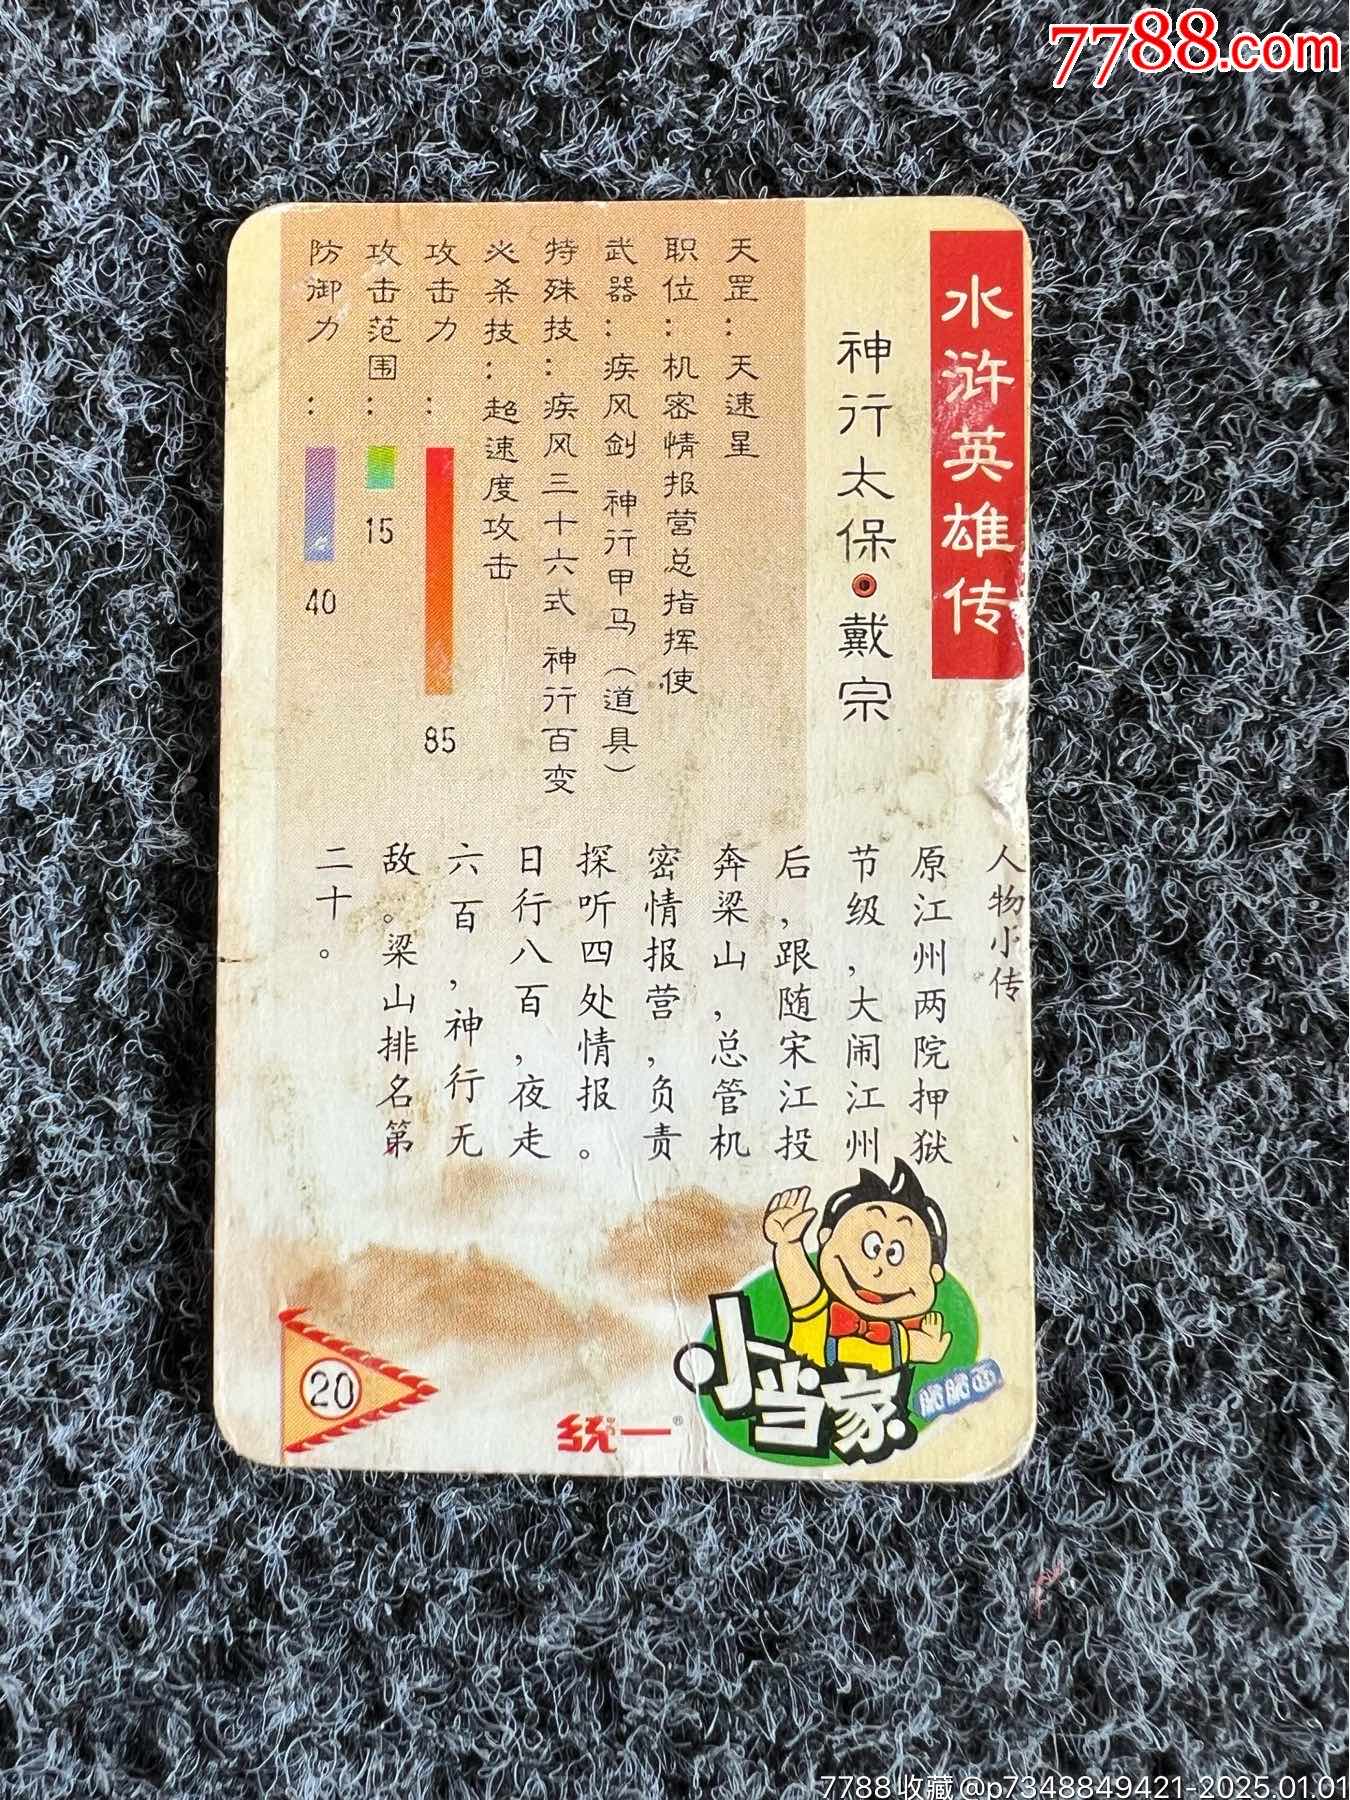 7788.com
水浒英雄传
神行太保·戴宗
天罡：天速星
职位：机密情报营总指挥使
武器：疾风剑 神行甲马（道具）
特殊技：疾风三十六式 神行百变
必杀技：超速度攻击
攻击力：85
攻击范围：15
防御力：40
人物小传
原江州两院押狱
节级，大闹江州
后，跟随宋江投
奔梁山，总管机
密情报营，负责
探听四处情报。
日行八百，夜走
六百，神行无
敌。梁山排名第
二十。
小当家
20
统一®
7788收藏@p7348849421-2025.01.01